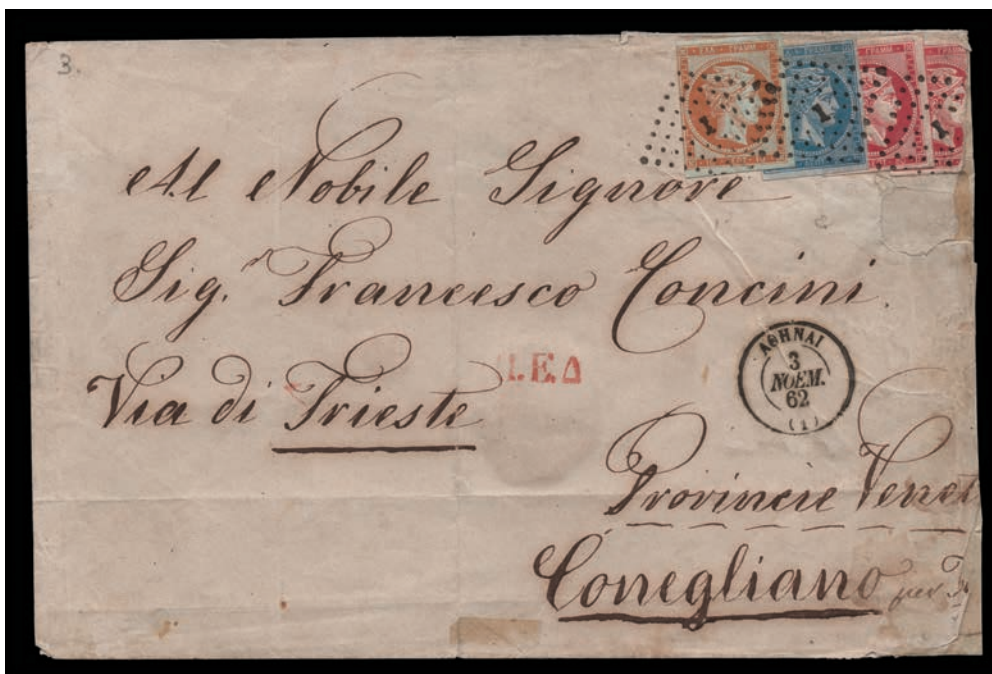 3.
ΕΛΛ. ΓΡΑΜΜ.
ΓΡΑΜΜ.
ΓΡΑΜΜ.
ΓΡΑΜΜ.
1
1
1
Al Nobile Signore
Sig.r Francesco Concini.
Via di Trieste
Π.Ε.Δ
ΑΘΗΝΑΙ
3
ΝΟΕΜ.
62
(1)
Provincie Venet
Conegliano
per